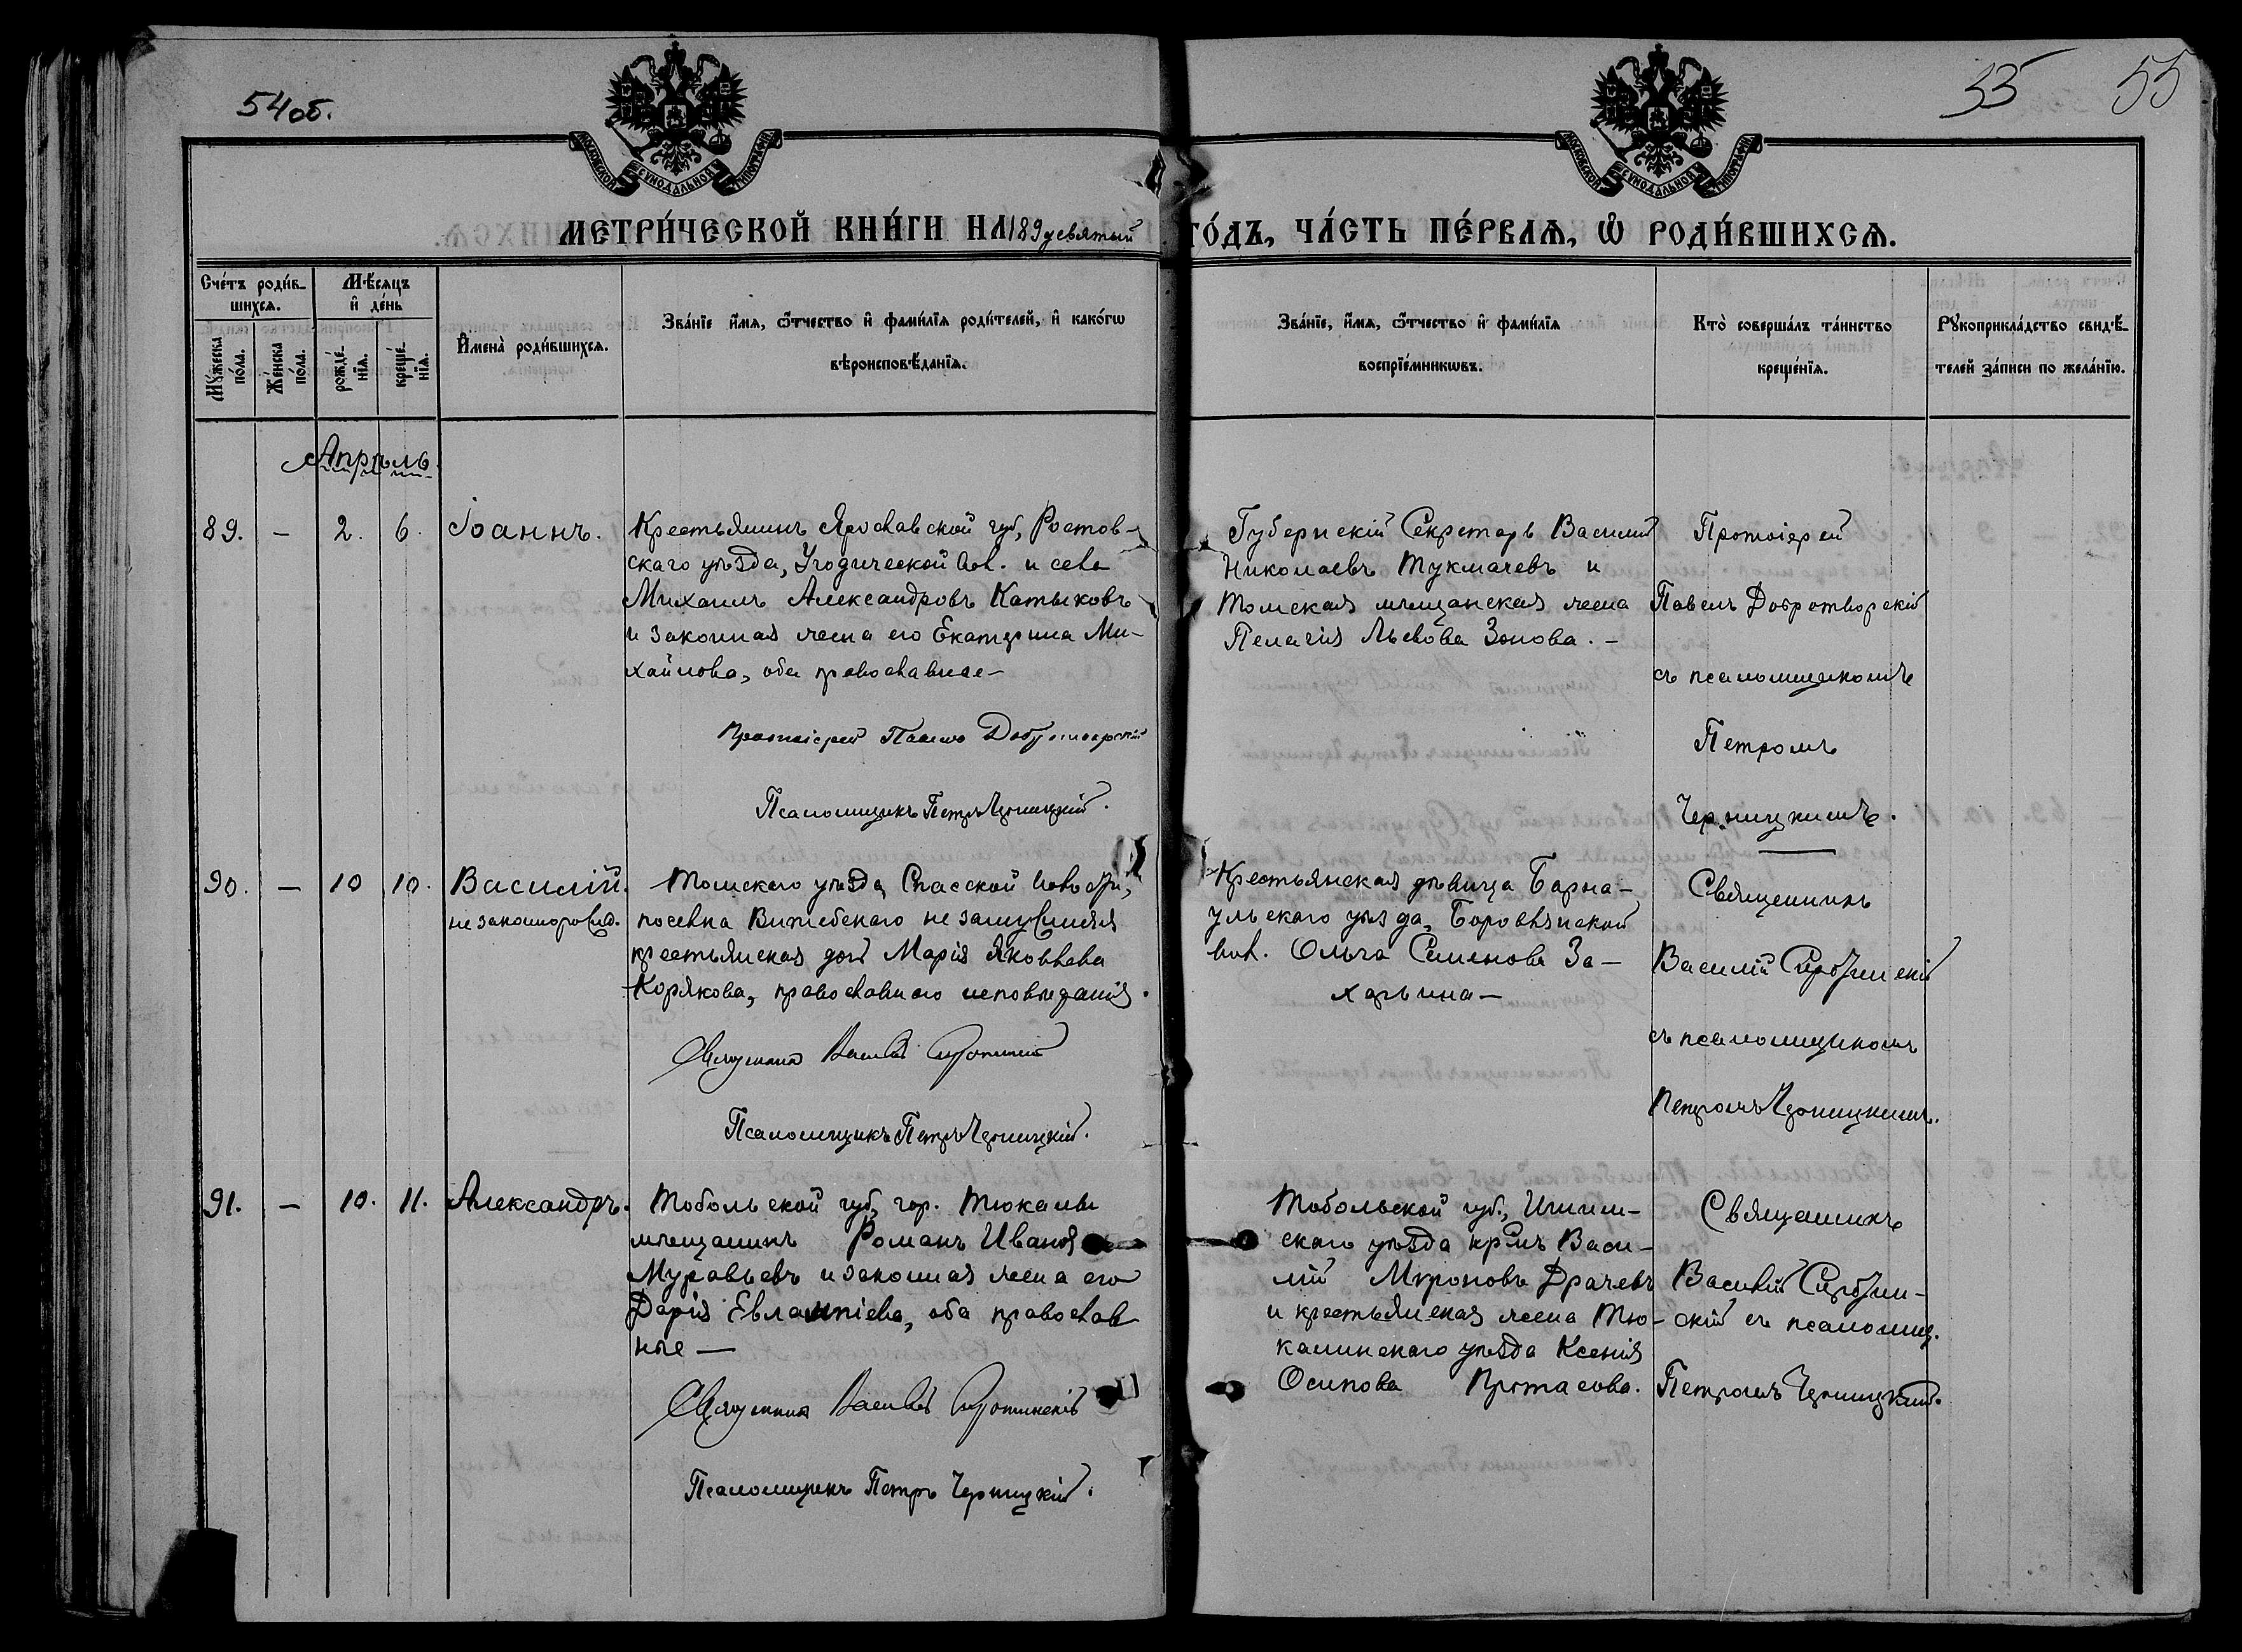 54 об.
55
55
МОСКОВСКОЙ СУНОДАЛЬНОЙ ТИПОГРАФІИ
МОСКОВСКОЙ СУНОДАЛЬНОЙ ТИПОГРАФІИ
МЕТРИ́ЧЕСКОЙ КНИ́ГИ НА 189девятый ГО́ДЪ, ЧА́СТЬ ПЕ́РВАѦ, Ѡ҆ РОДИ́ВШИХСѦ.
Сче́тъ роди́в-
шихсѧ.
Мѣ́сѧцъ
и҆ де́нь
Мꙋ́жеска по́ла.
Же́нска по́ла.
рожде́-нїѧ.
креще́-нїѧ.
И҆мена̀ роди́вшихсѧ.
Зва́нїе и҆́мѧ, ѻ҆́тчество и҆ фами́лїѧ роди́телей, и҆ како́гѡ
вѣроисповѣ́данїѧ.
Зва́нїе, и҆́мѧ, ѻ҆́тчество и҆ фами́лїѧ
воспрїе́мникѡвъ.
Кто̀ соверша́лъ та́инство
креще́нїѧ.
Рꙋкоприкла́дство свидѣ́-
телей за́писи по жела́нїю.
Апрѣль.
89. — 2. 6. Іоаннъ.
Крестьянинъ Ярославской губ, Ростов-
скаго уѣзда, Угодической вол. и села
Михаилъ Александровъ Катыковъ
и законная жена его Екатерина Ми-
хайлова, оба православные —
Протоіерей Павелъ Добротворскій
Псаломщикъ Петръ Черницкій.
Губернскій Секретарь Василій
Николаевъ Тукмачевъ и
Томская мѣщанская жена
Пелагія Львова Зонова. —
Протоіерей
Павелъ Добротворскій
съ псаломщикомъ
Петромъ
Черницкимъ.
90. — 10 10. Василій.
незаконнорожд.
Томскаго уѣзда, Спасской волости,
поселка Витебскаго незамужняя
крестьянская дочь Марія Яковлева
Корякова, православнаго исповѣданія.
Священникъ Василій Сиротинскій
Псаломщикъ Петръ Черницкій.
Крестьянская дѣвица Барна-
ульскаго уѣзда, Боровлянской
вол. Ольга Семенова За-
харьина —
Священникъ
Василій Сиротинскій
съ псаломщикомъ
Петромъ Черницкимъ.
91. — 10. 11. Александръ.
Тобольской губ, гор. Тюкалы
мѣщанинъ Романъ Иванов
Муравьевъ и законная жена его
Дарія Евлампіева, оба православ
ные —
Священникъ Василій Сиротинскій
Псаломщикъ Петръ Черницкій.
Тобольской губ., Ишим-
скаго уѣзда кр-нъ Васи-
лій Мироновъ Драчевъ
и крестьянская жена Тю-
калинскаго уѣзда Ксенія
Осипова Протасова.
Священникъ
Василій Сиротин-
скій съ псаломщ.
Петромъ Черницким.